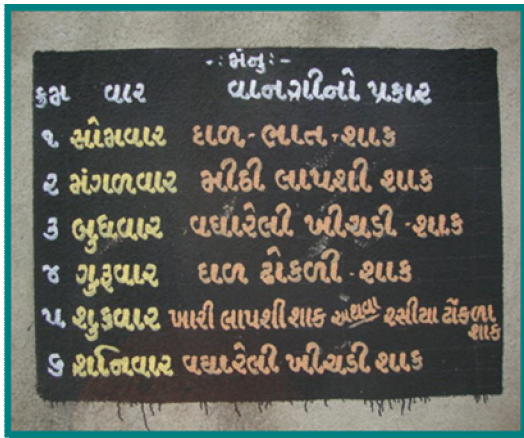 -: મેનુ :-
ક્રમ વાર વાનગીનો પ્રકાર
૧ સોમવાર દાળ - ભાત - શાક
૨ મંગળવાર મીઠી લાપશી શાક
૩ બુધવાર વઘારેલી ખીચડી - શાક
૪ ગુરૂવાર દાળ ઢોકળી - શાક
૫ શુક્રવાર ખારી લાપશી શાક અથવા રસીયા ઢોંકળા શાક
૬ શનિવાર વઘારેલી ખીચડી શાક